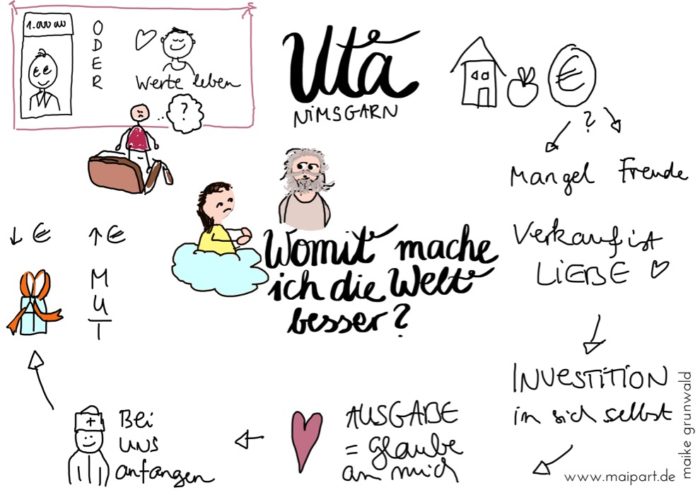 1.000.000
ODER
Werte leben
?
Uta
NiMSGARN
€
?
Mangel Freude
Verkauf ist
LIEBE
Womit mache
ich die Welt
besser?
↓ € ↑ €
MUT
INVESTITION
in sich selbst
AUSGABE
= Glaube
an mich
Bei
UNS
anfangen
www.maipart.de
maike grunwald